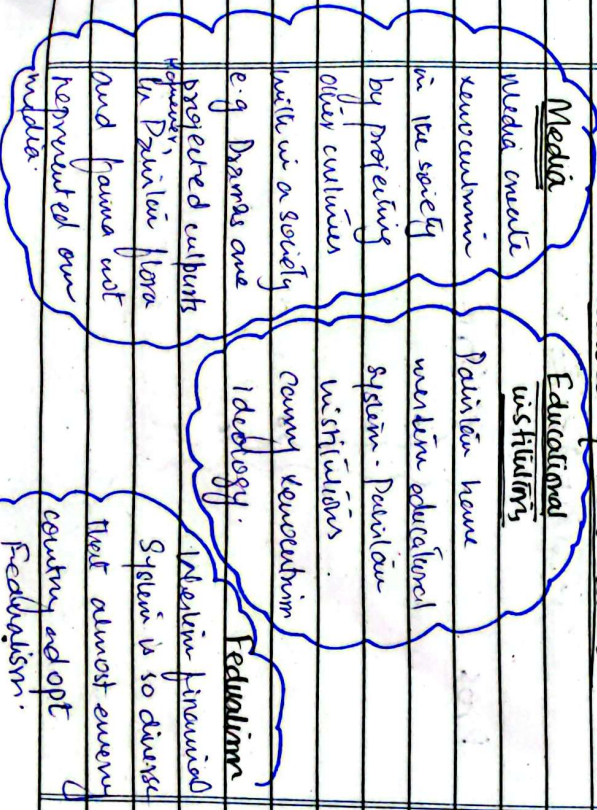 Media
Media create
xenocentrism
in the society
by projecting
other cultures
with in a society
e.g Dramas are
projected culprits
However,
in Pakistan flora
and fauna not
represented our
media.
Educational
institutions
Pakistan have
western educational
system. Pakistan
institutions
carry xenocentrism
ideology.
Fedualism
Western financial
System is so diverse
that almost every
country adopt
Fedualism.